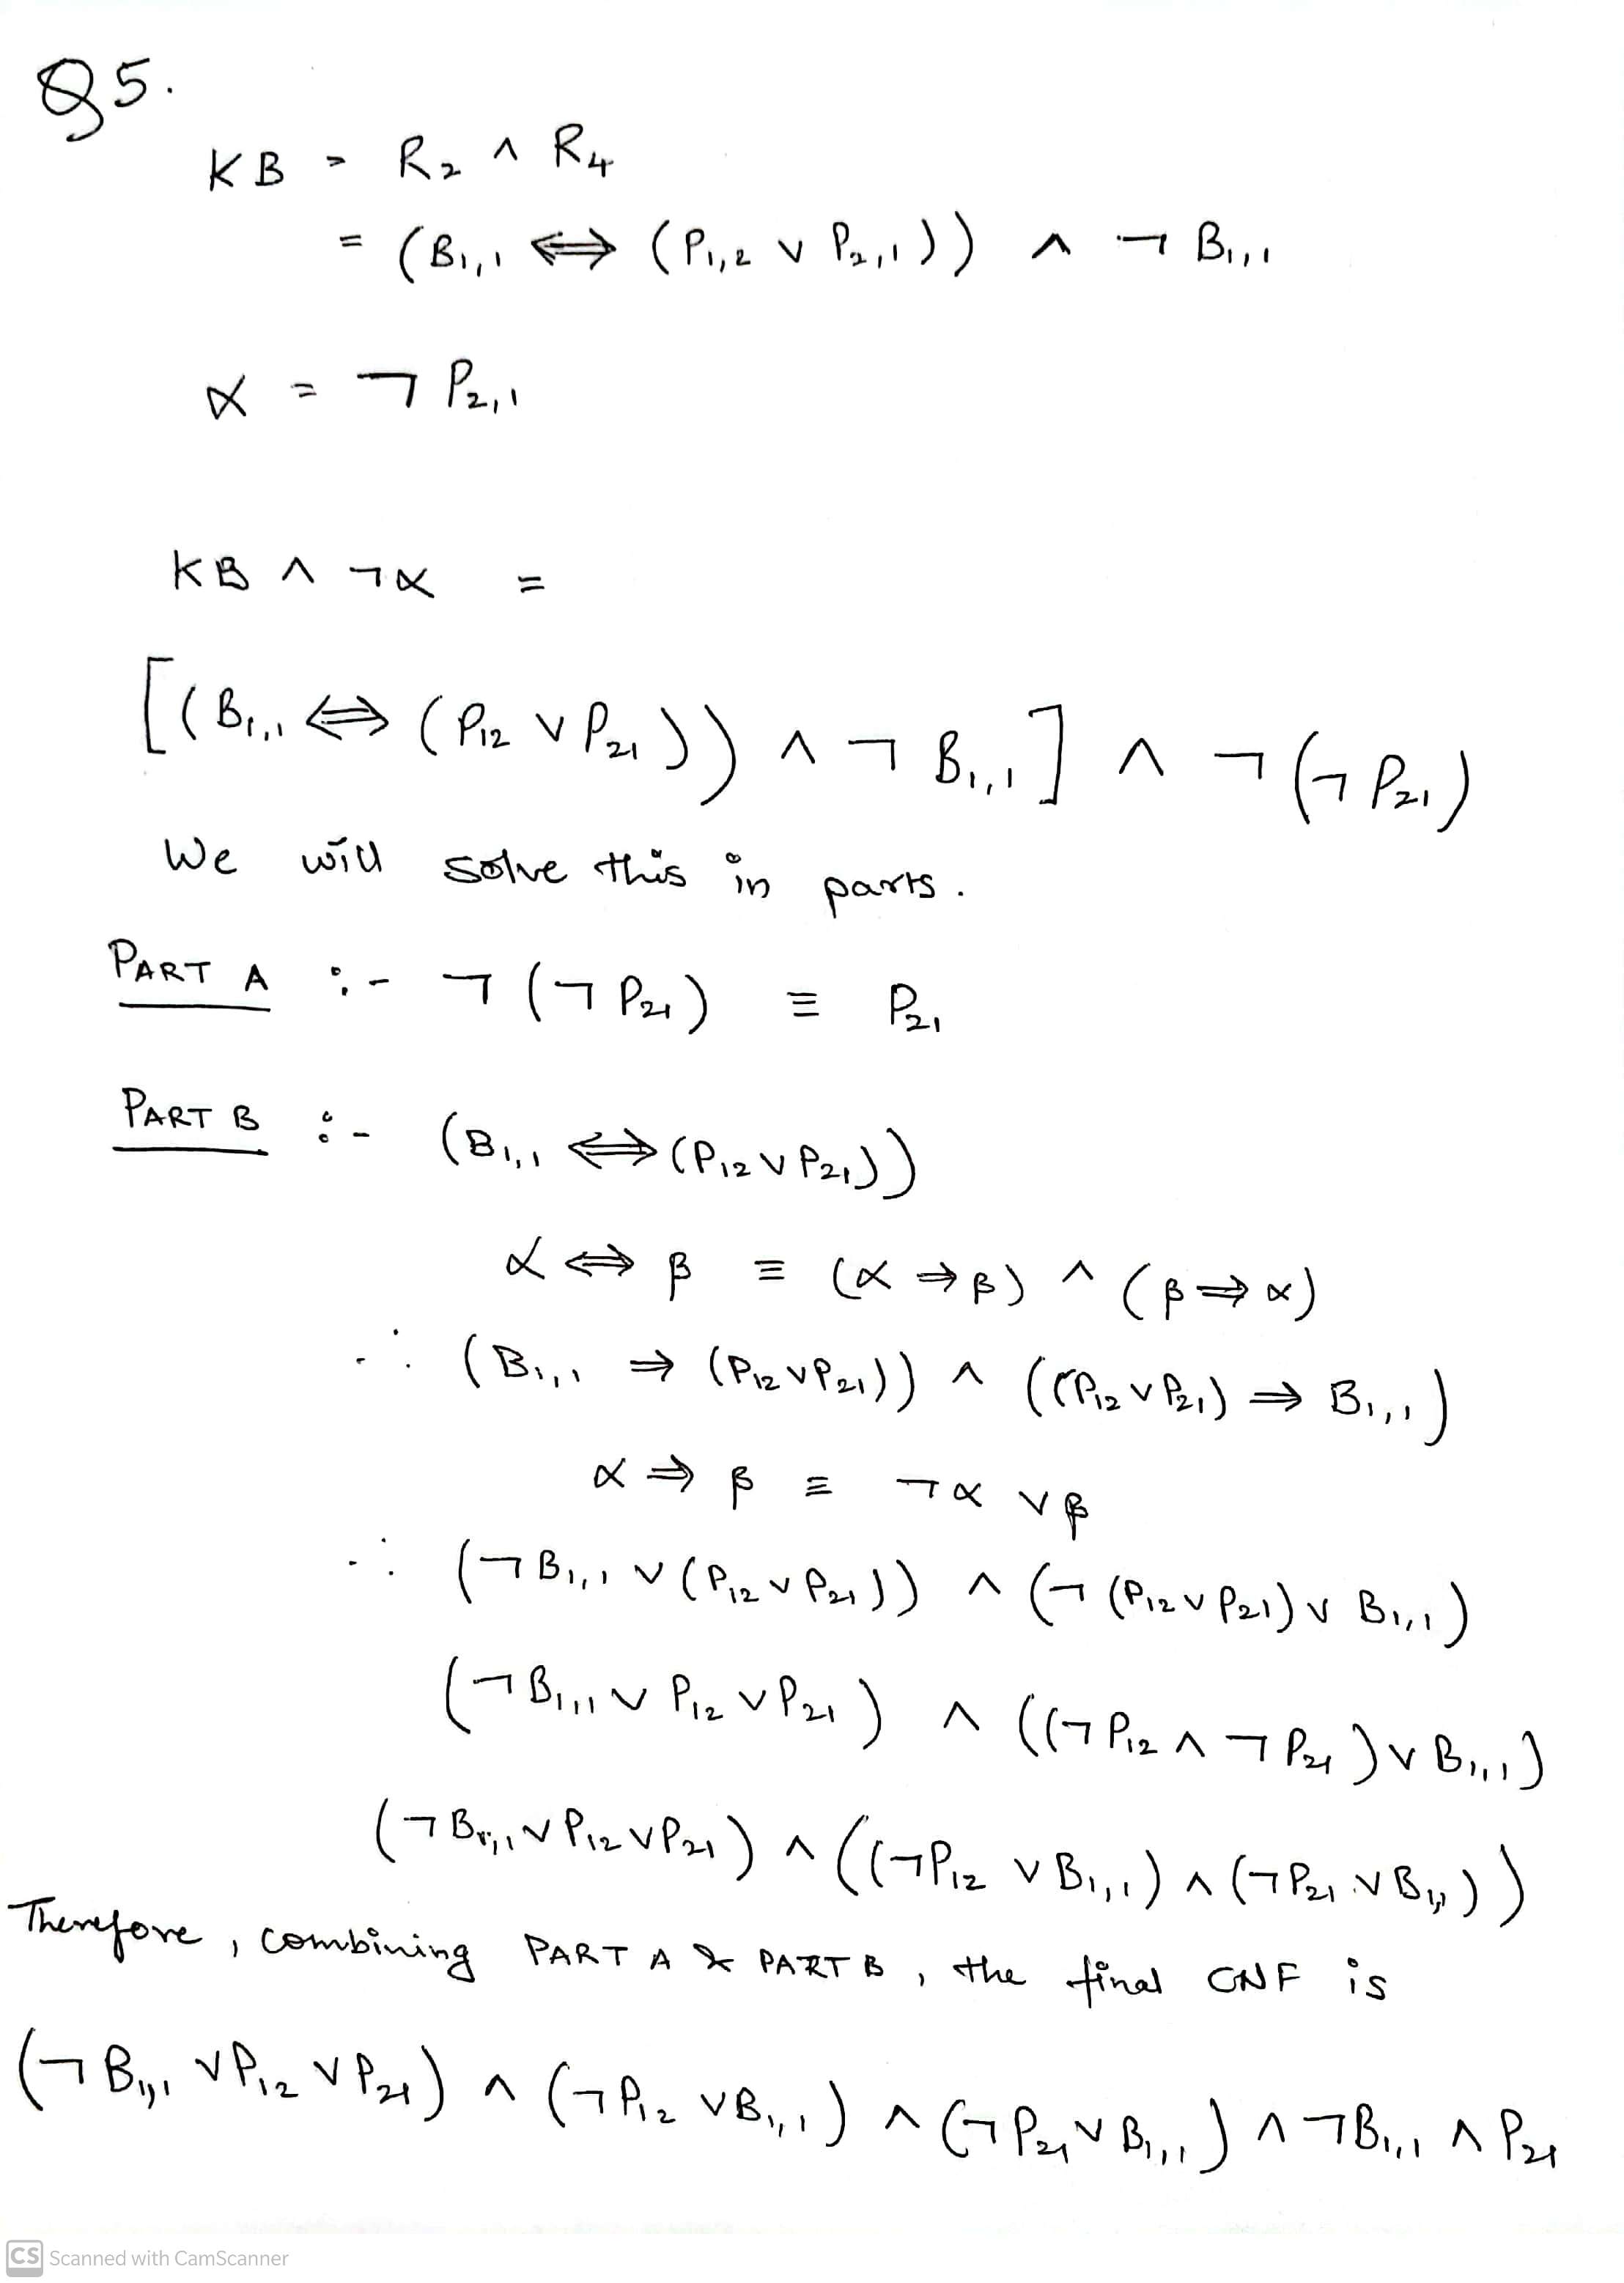 Q5.
KB = R₂ ∧ R₄
= (B₁,₁ ⟺ (P₁,₂ ∨ P₂,₁)) ∧ ¬ B₁,₁
α = ¬ P₂,₁
KB ∧ ¬α =
[(B₁,₁ ⟺ (P₁₂ ∨ P₂₁)) ∧ ¬ B₁,₁] ∧ ¬(¬ P₂₁)
We will solve this in parts.
PART A :- ¬(¬ P₂₁) ≡ P₂₁
PART B :- (B₁,₁ ⟺ (P₁₂ ∨ P₂₁))
α ⟺ β ≡ (α ⇒ β) ∧ (β ⇒ α)
∴ (B₁,₁ ⇒ (P₁₂ ∨ P₂₁)) ∧ ((P₁₂ ∨ P₂₁) ⇒ B₁,₁)
α ⇒ β ≡ ¬α ∨ β
∴ (¬B₁,₁ ∨ (P₁₂ ∨ P₂₁)) ∧ (¬(P₁₂ ∨ P₂₁) ∨ B₁,₁)
(¬B₁,₁ ∨ P₁₂ ∨ P₂₁) ∧ ((¬P₁₂ ∧ ¬P₂₁) ∨ B₁,₁)
(¬B₁,₁ ∨ P₁₂ ∨ P₂₁) ∧ ((¬P₁₂ ∨ B₁,₁) ∧ (¬P₂₁ ∨ B₁,₁))
Therefore, combining PART A & PART B, the final CNF is
(¬B₁,₁ ∨ P₁₂ ∨ P₂₁) ∧ (¬P₁₂ ∨ B₁,₁) ∧ (¬P₂₁ ∨ B₁,₁) ∧ ¬B₁,₁ ∧ P₂₁
CS Scanned with CamScanner